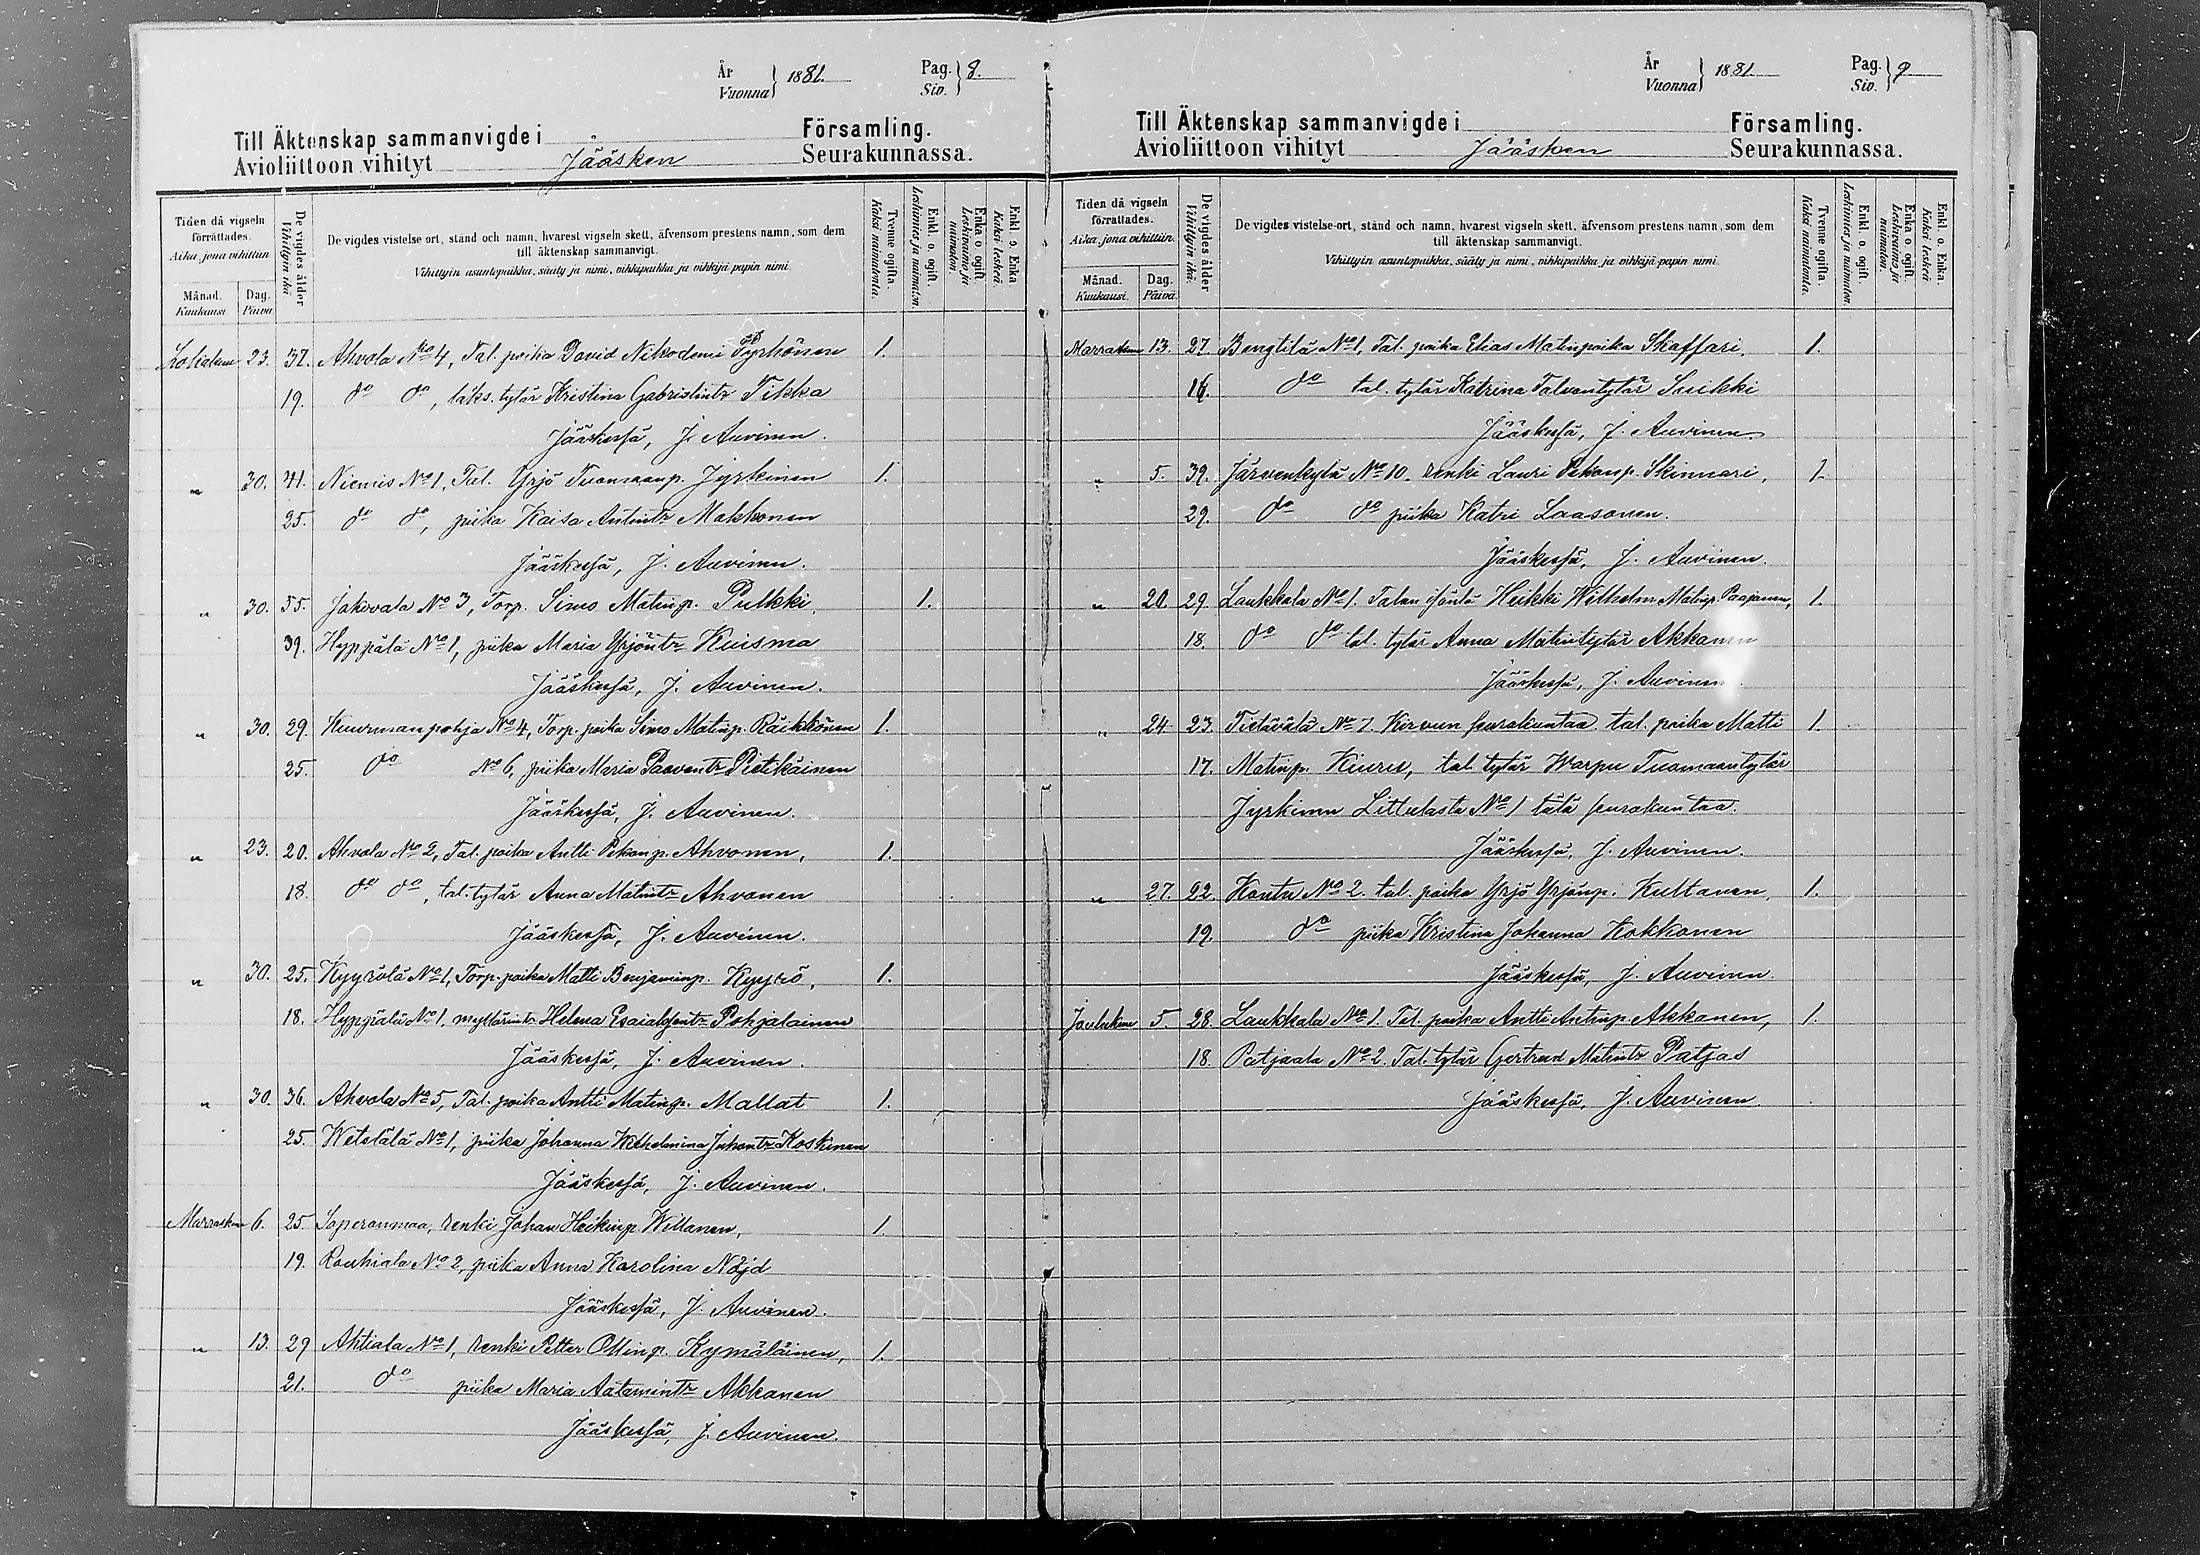 År
Vuonna } 1881. Pag.
Siv. } 8.
Till Äktenskap sammanvigde i Församling.
Avioliittoon vihityt Jääsken Seurakunnassa.
Tiden då vigseln förrättades.
Aika, jona vihittiin
Månad. Kuukausi.
Dag. Päivä.
De vigdes ålder
Vihittyin ikä.
De vigdes vistelse ort, stånd och namn, hvarest vigseln skett, äfvensom prestens namn, som dem
till äktenskap sammanvigt.
Vihittyin asuntopaikka, sääty ja nimi, vihkipaikka ja vihkijä papin nimi.
Tvenne ogifta.
Kaksi naimatonta.
Enkl. o. ogift.
Leskimies ja naimaton.
Enka o. ogift.
Leskivaimo ja naimaton.
Enkl. o. Enka
Kaksi leskeä.
Lokakuu 23. 37. Ahvola No 4, Tal. poika David Nikodemi Tyrhönen 1.
19. do do, läks. tytär Kristina Gabrielintr Tikka
Jääskessä, J. Auvinen.
" 30. 41. Niemis No 1, Tal. Yrjö Tuomaanp. Jyrkinen 1.
25. do do, piika Kaisa Antintr Makkonen
Jääskessä, J. Auvinen.
" 30. 55. Jakovala No 3, Torp. Simo Matinp. Pulkki, 1.
39. Hyppälä No 1, piika Maria Yrjöntr Kuisma
Jääskessä, J. Auvinen.
" 30. 29. Kuurmanpohja No 4, Torp. poika Simo Matinp. Räikkönen 1.
25. do No 6, piika Maria Paaventr Pietikäinen
Jääskessä, J. Auvinen.
" 23. 20. Ahvola No 2, Tal. poika Antti Pekanp. Ahvonen, 1.
18. do do, tal. tytär Anna Matintr Ahvonen
Jääskessä, J. Auvinen.
" 30. 25. Kyyrölä No 1, Torp. poika Matti Benjaminp. Kyyrö, 1.
18. Hyppälä No 1, myllärintr Helena Esaiaksentr Pohjalainen
Jääskessä, J. Auvinen.
" 30. 36. Ahvola No 5, Tal. poika Antti Matinp. Mallat 1.
25. Wetelälä No 1, piika Johanna Wilhelmina Juhontr Koskinen
Jääskessä, J. Auvinen.
Marraskuu 6. 25. Saperanmaa, renki Johan Heikinp. Willanen, 1.
19. Rouhiala No 2, piika Anna Karolina Nöjd
Jääskessä, J. Auvinen.
" 13. 29 Ahtiala No 1, renki Petter Ollinp. Kymäläinen, 1.
21. do piika Maria Aatamintr Akkanen
Jääskessä, J. Auvinen.
År
Vuonna } 1881 Pag.
Siv. } 9
Till Äktenskap sammanvigde i Församling.
Avioliittoon vihityt Jääsken Seurakunnassa.
Tiden då vigseln förrättades.
Aika, jona vihittiin.
Månad. Kuukausi.
Dag. Päivä.
De vigdes ålder
Vihittyin ikä.
De vigdes vistelse-ort, stånd och namn, hvarest vigseln skett, äfvensom prestens namn, som dem
till äktenskap sammanvigt.
Vihittyin asuntopaikka, sääty ja nimi, vihkipaikka ja vihkijä papin nimi.
Tvenne ogifta.
Kaksi naimatonta.
Enkl. o. ogift.
Leskimies ja naimaton.
Enka o. ogift.
Leskivaimo ja naimaton.
Enkl. o. Enka.
Kaksi leskeä.
Marraskuu 13. 27. Bengtilä No 1, Tal. poika Elias Matinpoika Skaffari, 1.
16. do tal. tytär Katrina Talvantytär Suikki
Jääskessä, J. Auvinen
" 5. 39. Järvenkylä No 10. renki Lauri Pekanp. Skinnari, 1
29. do do piika Katri Laasonen.
Jääskessä, J. Auvinen.
" 20. 29 Laukkala No 1. Talon isäntä Heikki Wilhelm Matinp. Paajanen, 1.
18. do do tal. tytär Anna Matintytär Akkanen
Jääskessä, J. Auvinen.
" 24 23. Tietävälä No 7. Kirvun seurakuntaa tal. poika Matti 1.
17. Matinp. Kiuru, tal. tytär Warpu Tuomaantytär
Jyrkinen Littulasta No 1 tätä seurakuntaa.
Jääskessä, J. Auvinen.
" 27. 22. Kontu No 2. tal. poika Yrjö Yrjönp. Kuttanen, 1.
19. do piika Kristina Johanna Kokkonen
Jääskessä, J. Auvinen
Joulukuu 5. 28. Laukkala No 1. Tal. poika Antti Antinp. Akkanen, 1.
18. Patjaala No 2. Tal. tytär Gertrud Matintr Patjas
Jääskessä, J. Auvinen.